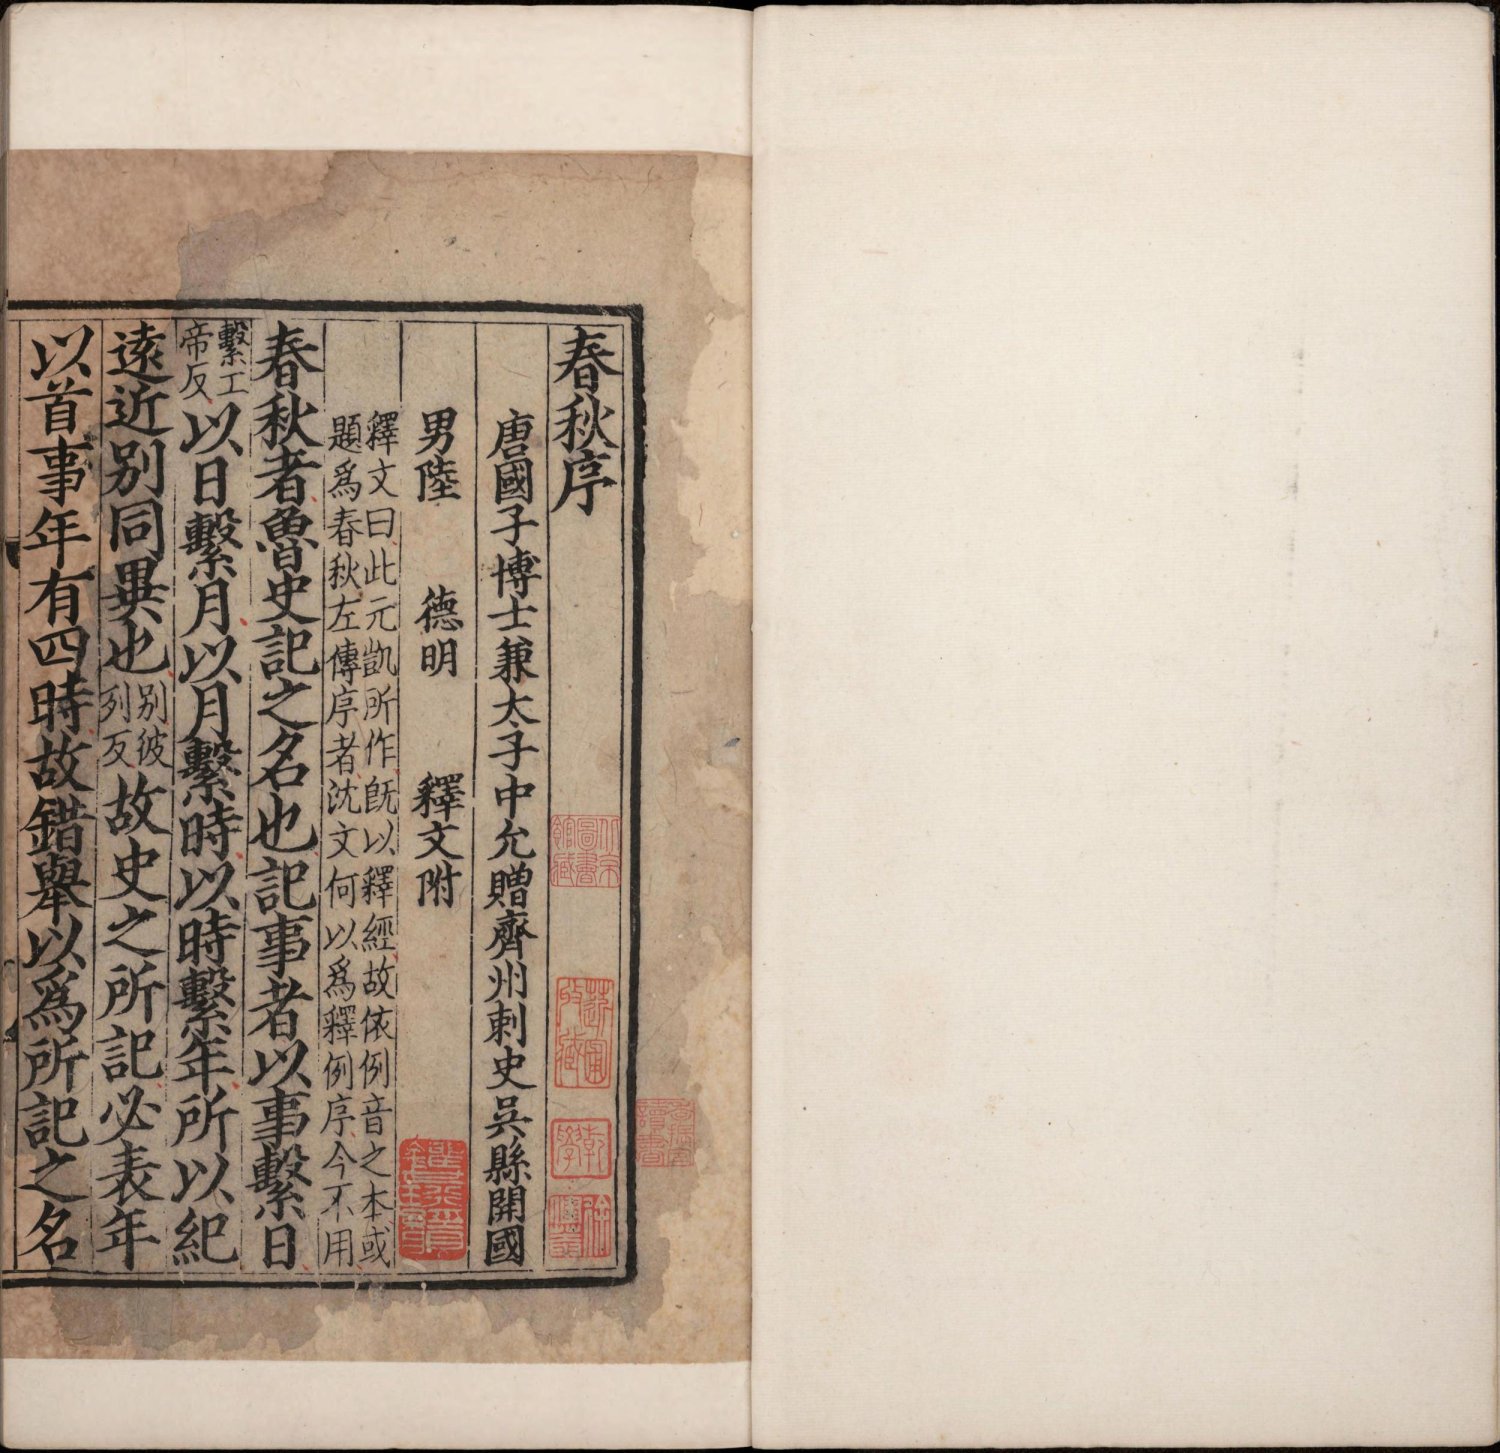 春秋序
唐國子博士兼太子中允贈齊州刺史吳縣開國
男陸　德明　釋文附
釋文曰此元凱所作旣以釋經故依例音之本或
題爲春秋左傳序者沈文何以爲釋例序今不用
春秋者魯史記之名也記事者以事繫日
繫工
帝反
以日繫月以月繫時以時繫年所以紀
遠近別同異也
別彼
列反
故史之所記必表年
以首事年有四時故錯舉以爲所記之名
北京圖書館藏